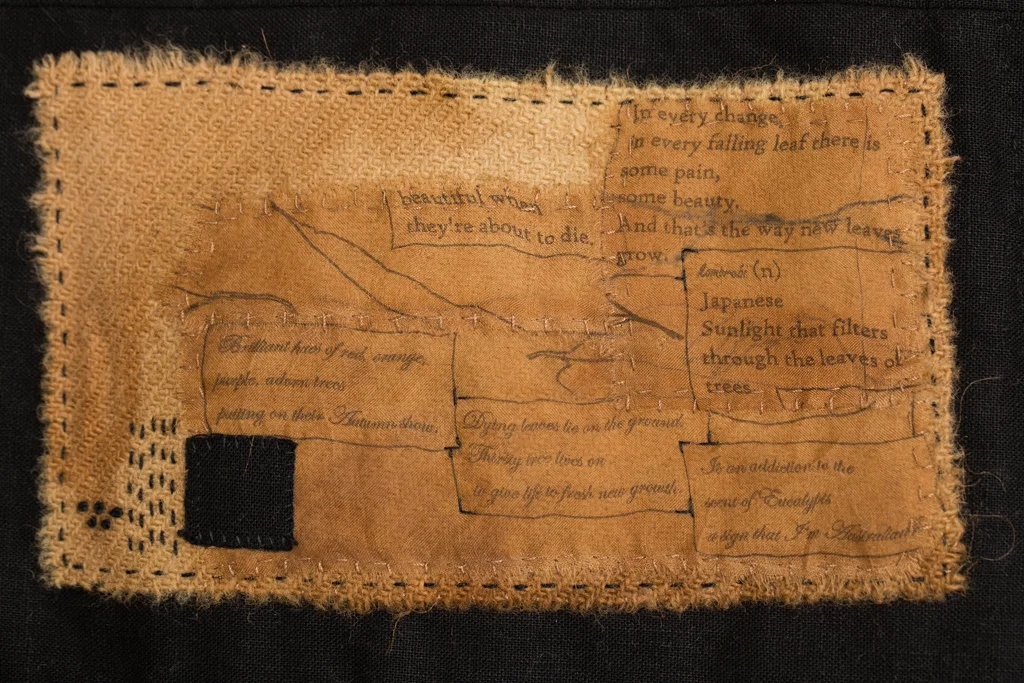 In every change,
in every falling leaf there is
some pain,
some beauty.
And that's the way new leaves
grow.
beautiful when
they're about to die.
Komorebi (n)
Japanese
Sunlight that filters
through the leaves of
trees
Brilliant hues of red, orange,
purple, adorn trees
putting on their Autumn show.
Dying leaves lie on the ground.
Thirsty tree lives on
to give life to fresh new growth
Is an addiction to the
scent of Eucalypts
a sign that I'm Australian?